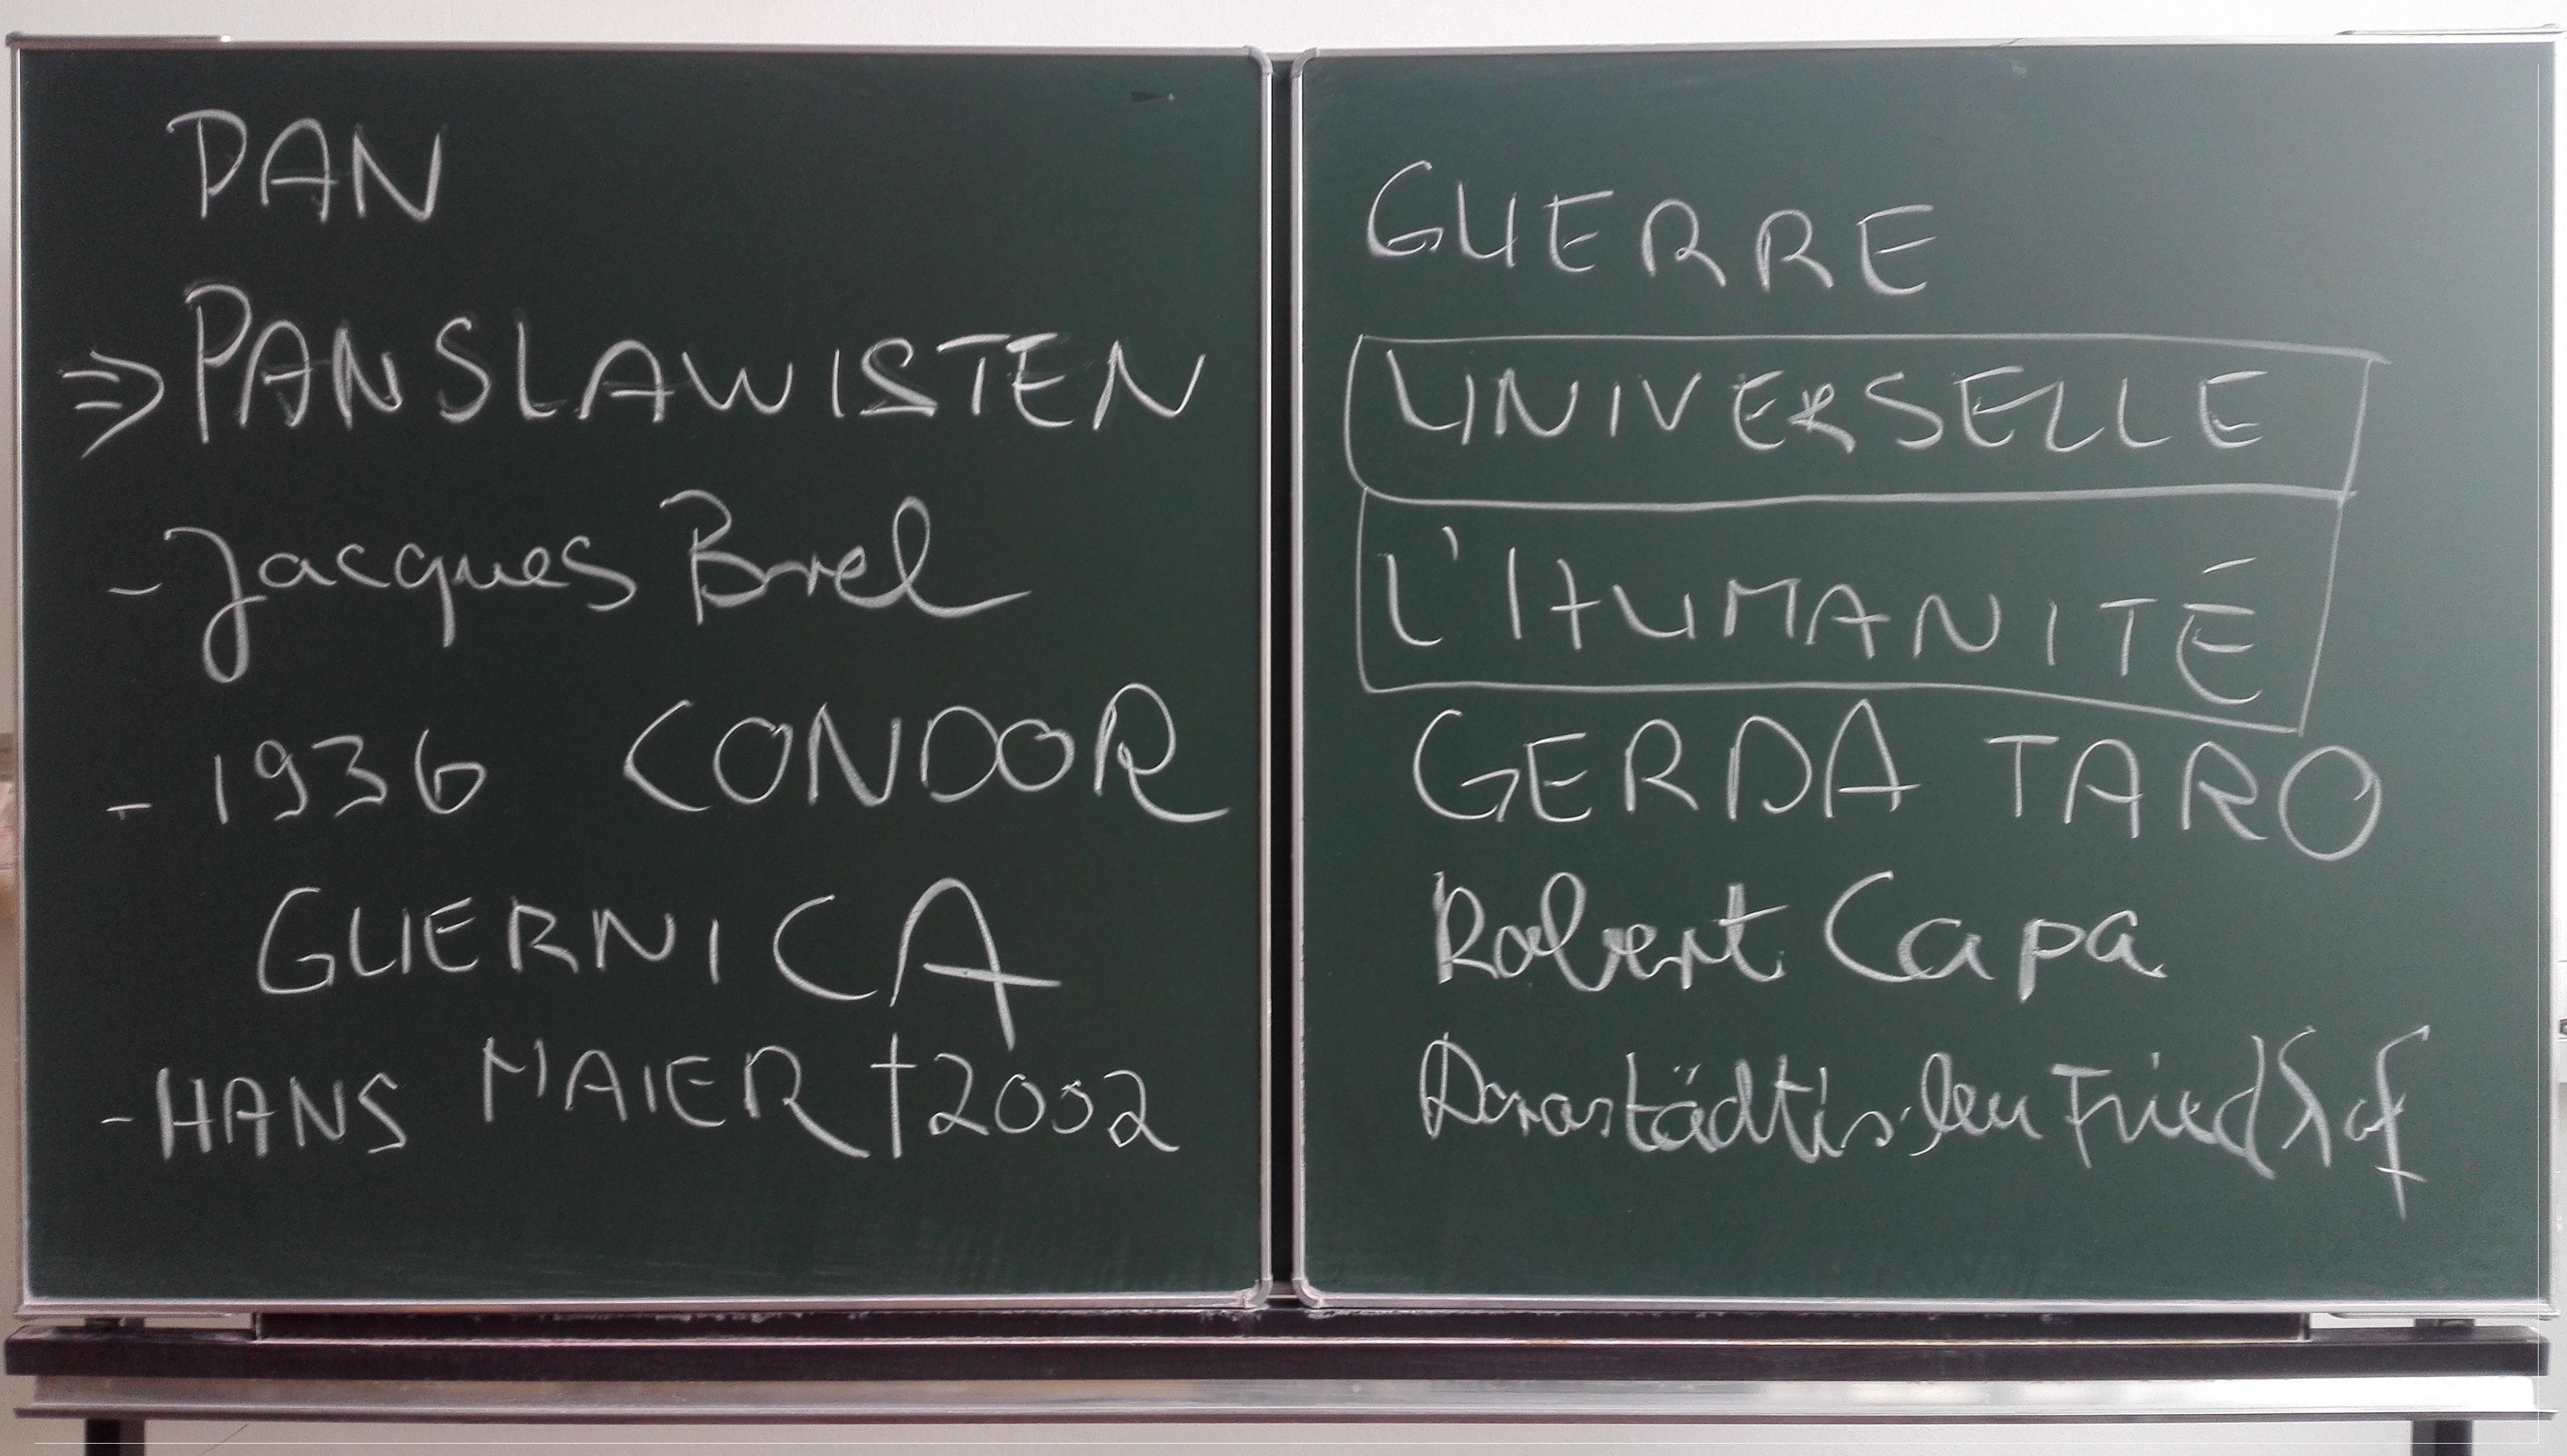 PAN
⇒ PANSLAWISTEN
- Jacques Brel
- 1936 CONDOR
GUERNICA
- HANS MAIER †2002
GUERRE
UNIVERSELLE
L'HUMANITÉ
GERDA TARO
Robert Capa
Friedhof